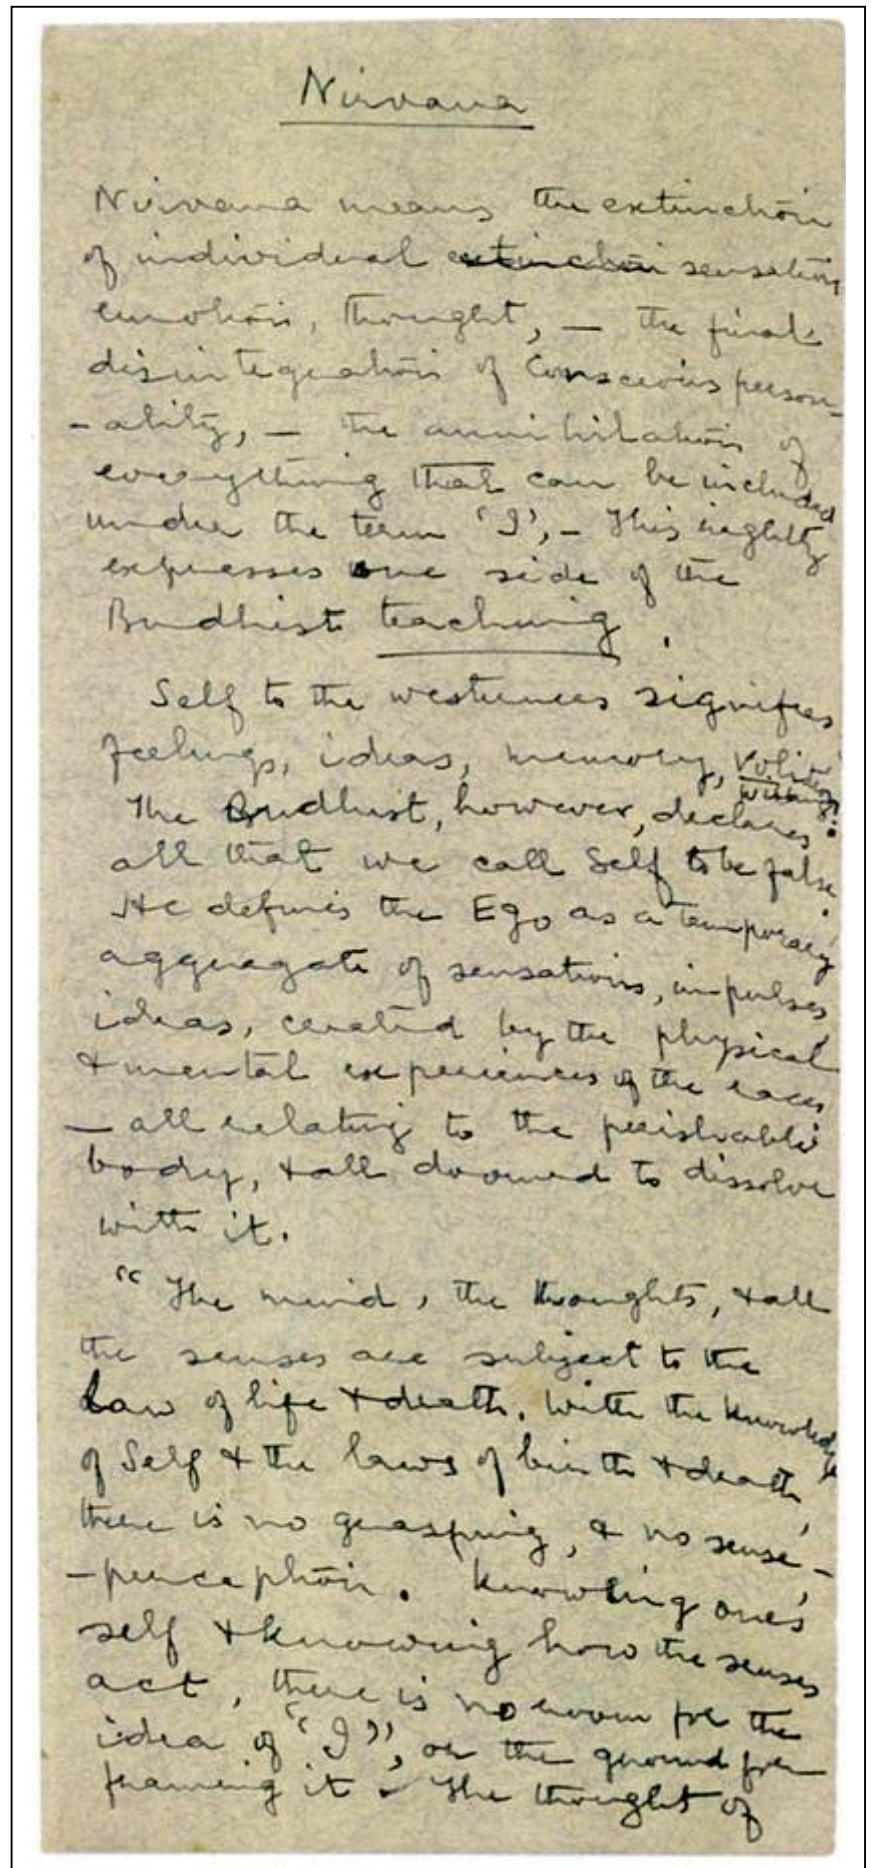 Nirvana
Nirvana means the extinction
of individual extinction sensation
emotion, thought, — the final
disintegration of Conscious person-
-ality, — the annihilation of
everything that can be included
under the term 'I', — This rightly
expresses one side of the
Budhist teaching.
Self to the westerners signifies
feelings, ideas, memory, Volition
The Budhist, however, declares
all that we call Self to be false.
He defines the Ego as a temporary
aggregate of sensations, impulses
ideas, created by the physical
& mental experiences of the races
— all relating to the perishable
body, & all doomed to dissolve
with it.
"The mind, the thoughts, & all
the senses are subject to the
Law of life & death. With the knowledge
of Self & the laws of birth & death,
there is no grasping, & no sense-
-perception. Knowing one's
self & knowing how the senses
act, there is no room for the
idea of "I", or the ground for
framing it. The thought of